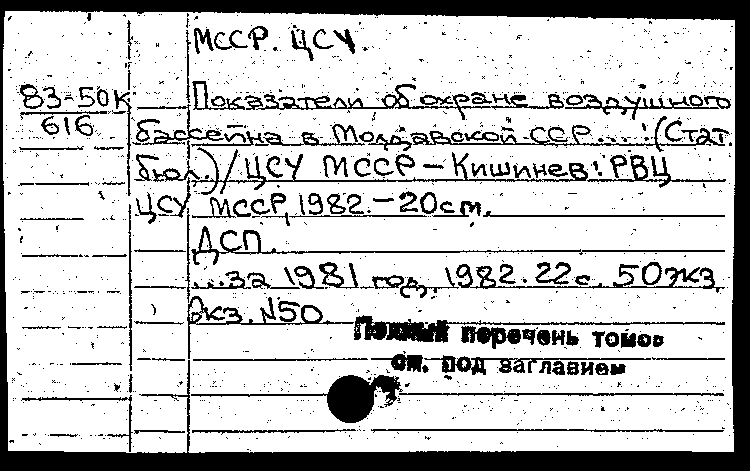 МССР. ЦСУ.
83-50К
616
Показатели об охране воздушного
бассейна в Молдавской ССР...: (Стат.
бюл.) / ЦСУ МССР - Кишинев: РВЦ
ЦСУ МССР, 1982. - 20 см.
ДСП.
...за 1981 год. 1982. 22с. 50 экз.
Экз. N50.
Полный перечень томов
см. под заглавием